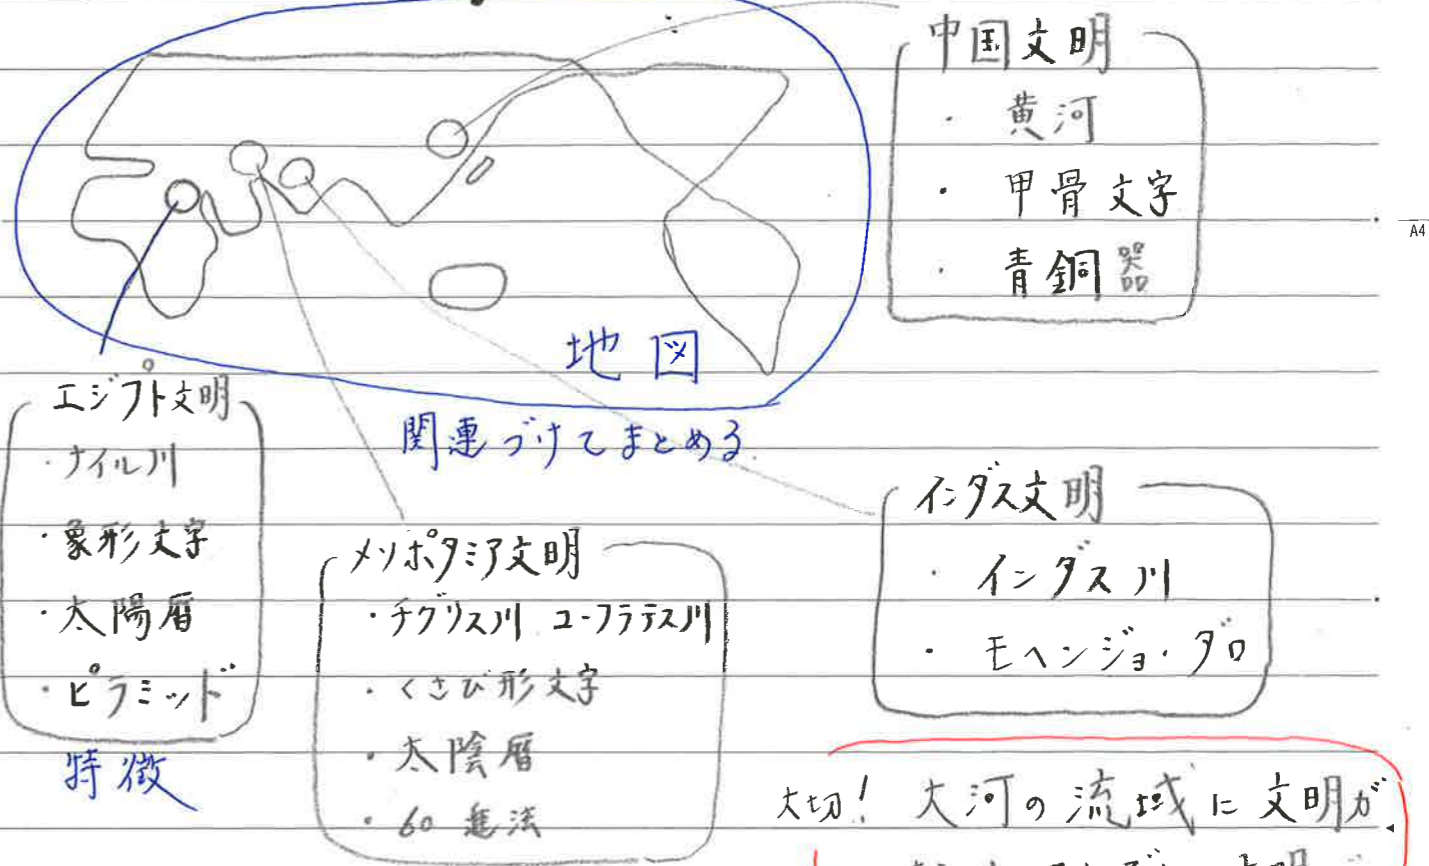 中国文明
・黄河
・甲骨文字
・青銅器
A4
地図
関連づけてまとめる
エジプト文明
・ナイル川
・象形文字
・太陽暦
・ピラミッド
特徴
メソポタミア文明
・チグリス川 ユーフラテス川
・くさび形文字
・太陰暦
・60進法
インダス文明
・インダス川
・モヘンジョ・ダロ
大切! 大河の流域に文明が